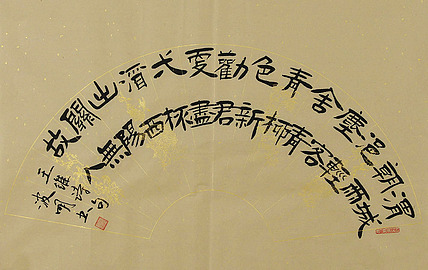 渭城
朝雨
浥輕
塵客
舍青
青柳
色新
勸君
更盡
弌杯
酒西
出陽
關無
故人
王維詩句
波明